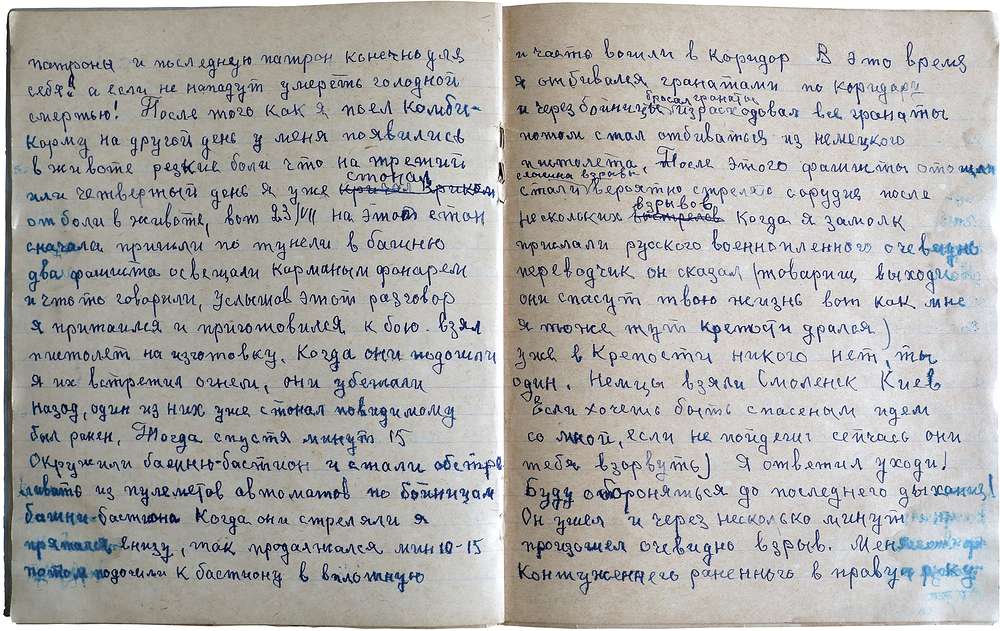 патроны и последную патрон конечно для
себя! а если не нападут умереть голодной
смертью! После того как я поел комби-
корму на другой день у меня появились
в животе резкие боли что на третий
стонал
или четвертый день я уже кричал криком
от боли в животе, вот 23/VII на этот стон
сначала пришли по тунели в башню
два фашиста освещали карманым фанарем
и что то говорили, Услышав этот разговор
я притаился и приготовился к бою. взял
пистолет на изготовку. Когда они подошли
я их встретил огнем, они убежали
назад, один из них уже стонал повидимому
был ранен, Тогда спустя минут 15
Окружили башню-бастион и стали обстре
ливать из пулеметов автоматов по бойницам
башни-бастиона Когда они стреляли я
прятался внизу, так продалжался мин 10-15
потом подошли к бастиону в вплотную
и часть вошли в коридор В это время
я отбивался гранатами по коридару
бросал гранаты
и через бойницы израсходовал все гранаты
потом стал отбиваться из немецкого
пистолета. После этого фашисты отошли
слышна взрывы
стали вероятно стрелять с орудия после
взрывов
нескольких выстрелов Когда я замолк
прислали русского военнопленного очевидно
переводчик он сказал (товарищ выходи
они спасут твою жизнь вот как мне
я тоже тут крепости дрался)
уже в Крепости никого нет, ты
один. Немцы взяли Смоленск Киев
Если хочешь быть спасеным идем
со мной, если не пойдеш сейчась они
тебя взорвуть) Я ответил уходи!
Буду обороняться до последнего дыхания!
Он ушел и через несколько минут
произошел очевидно взрыв. Меня
контуженнего раненного в праву руку